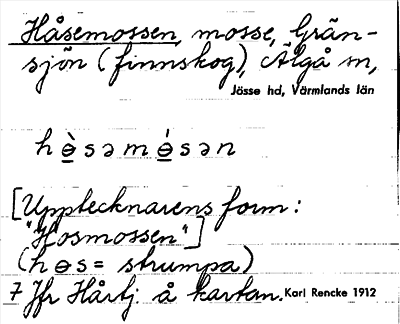 Håsemossen, mosse, Grän-
sjön (finnskog), Älgå sn,
Jösse hd, Värmlands län
hɵ̀səmɵ́sən
[Upptecknarens form:
"Hosmossen"]
(hɵs = strumpa)
7 Jfr Håtj. å kartan. Karl Rencke 1912